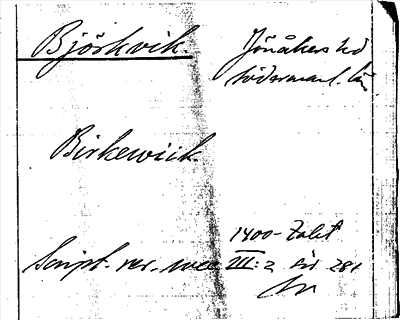 Björkvik. Jönåkers hd
Södermanl. län.
Birkewick.
1400-talet
Script. rer. svec III:2 sid 281